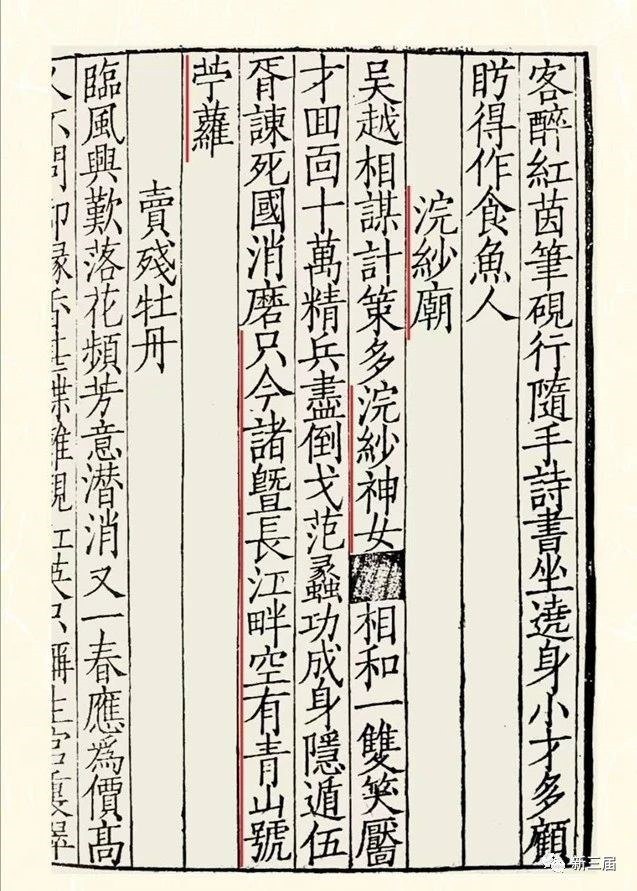 客醉紅茵筆硯行隨手詩書坐遶身小才多顧
眄得作食魚人
浣紗廟
吳越相謀計策多浣紗神女相和一雙笑靨
才囬靣十萬精兵盡倒戈范蠡功成身隱遁伍
胥諫死國消磨只今諸暨長江畔空有青山號
苧蘿
賣殘牡丹
臨風興歎落花頻芳意潜消又一春應爲價高
新三届